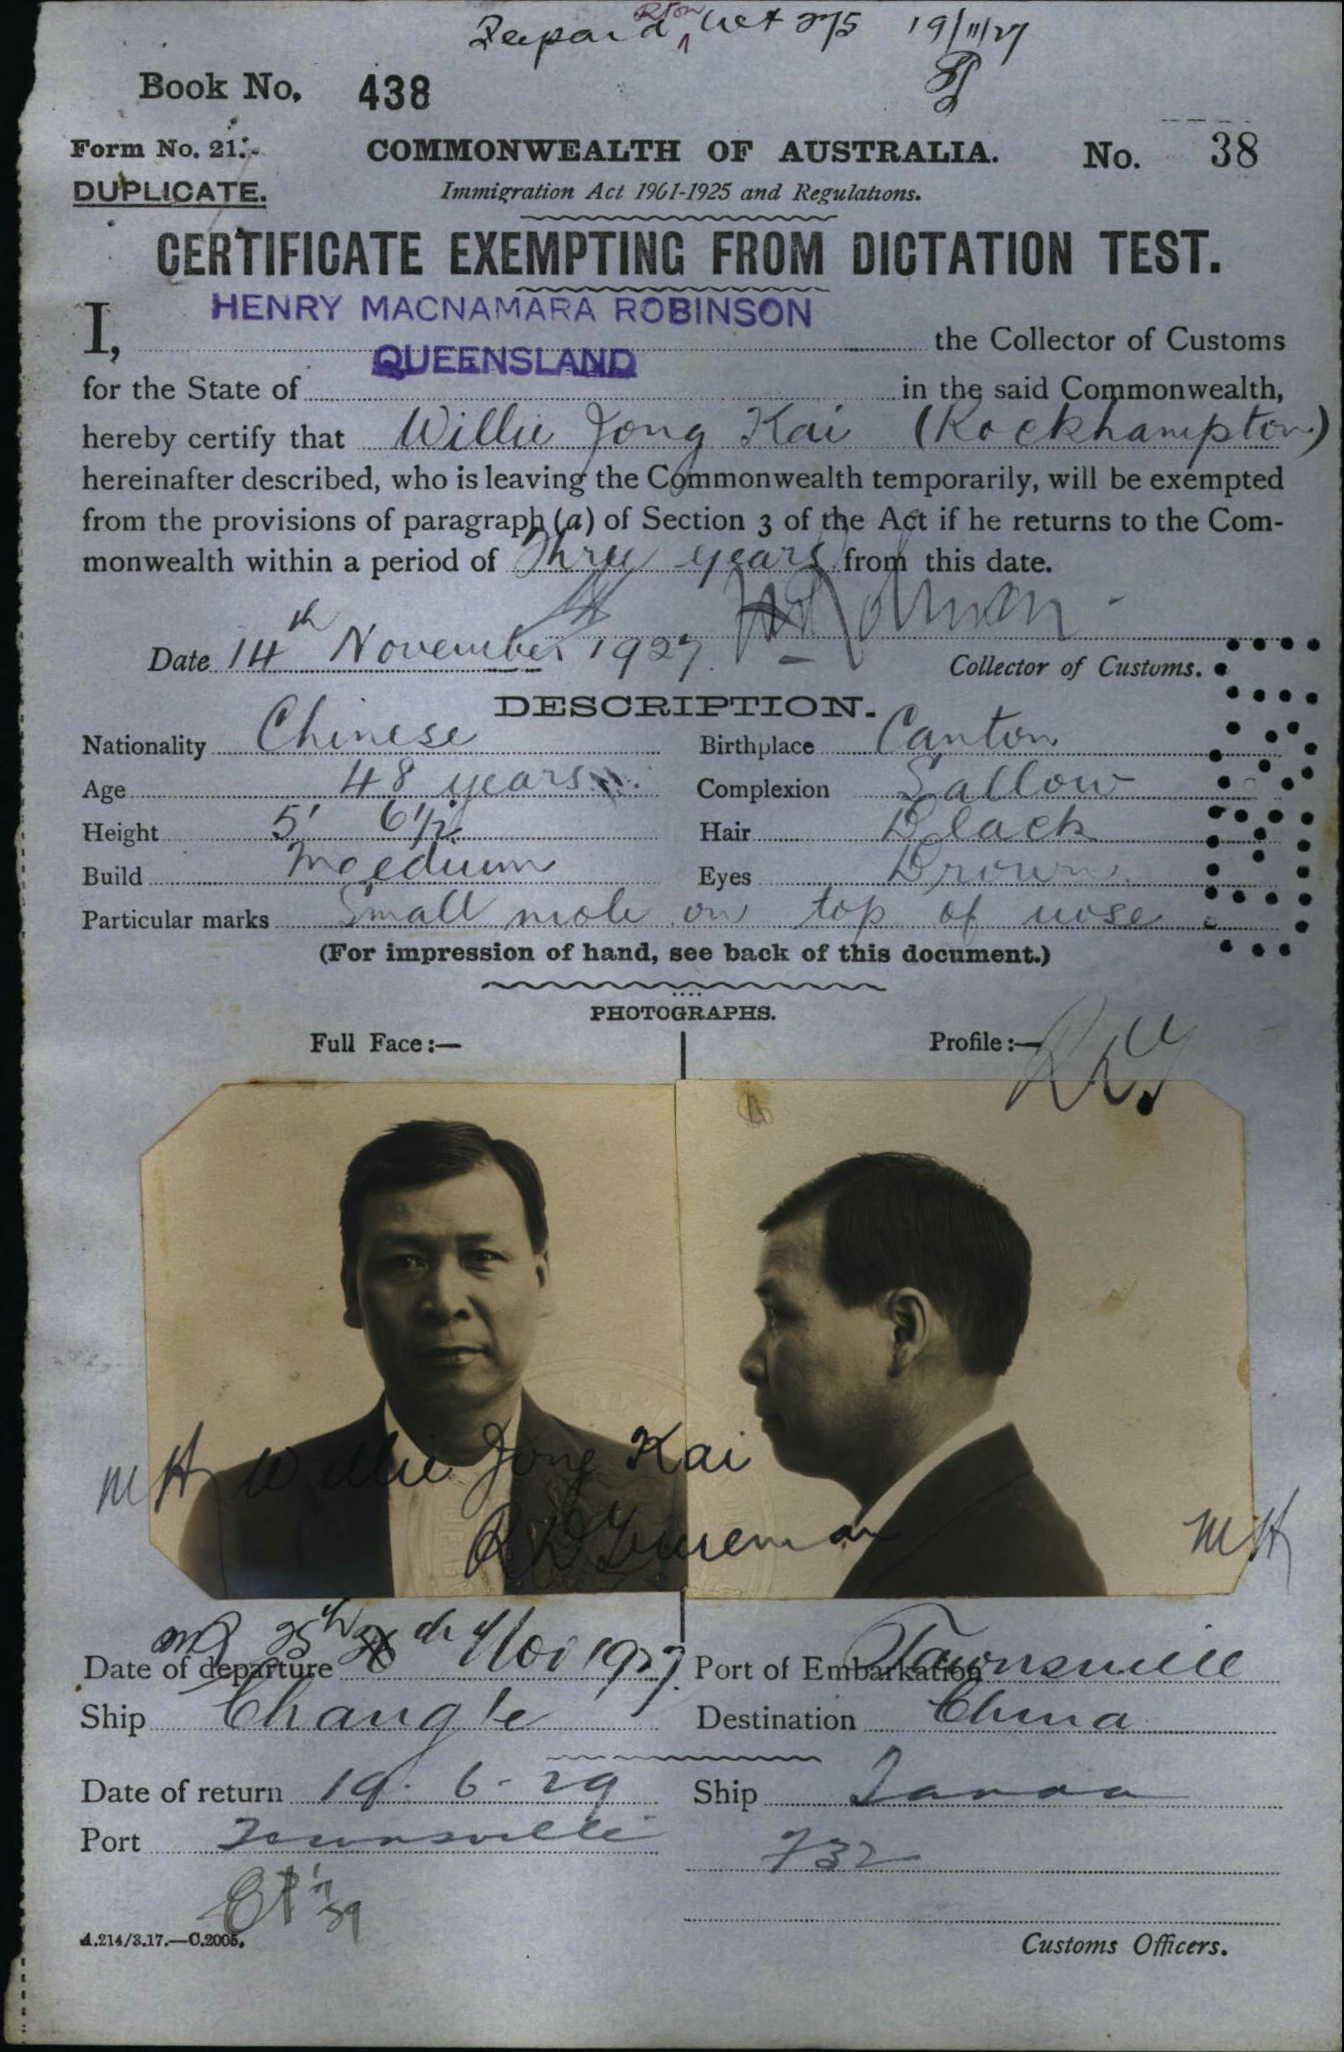 Act 275 19/11/27
Book No. 438
Form No. 21. COMMONWEALTH OF AUSTRALIA. No. 38
DUPLICATE. Immigration Act 1901-1925 and Regulations.
CERTIFICATE EXEMPTING FROM DICTATION TEST.
HENRY MACNAMARA ROBINSON
I, the Collector of Customs
QUEENSLAND
for the State of in the said Commonwealth,
hereby certify that Willie Jong Kai (Rockhampton)
hereinafter described, who is leaving the Commonwealth temporarily, will be exempted
from the provisions of paragraph (a) of Section 3 of the Act if he returns to the Com-
monwealth within a period of Three years from this date.
Date 14th November 1927. HMRobinson
Collector of Customs.
DESCRIPTION.
Nationality Chinese Birthplace Canton
Age 48 years Complexion Sallow
Height 5' 6½ Hair Black
Build Medium Eyes Brown
Particular marks Small mole on top of nose
(For impression of hand, see back of this document.)
PHOTOGRAPHS.
Full Face:— Profile:—
Willie Jong Kai
MH MH
Date of departure 25th Nov 1927. Port of Embarkation Townsville
Ship Changte Destination China
Date of return 19. 6. 29 Ship Tanda
Port Townsville 732
A.214/3.17.—C.2005. Customs Officers.